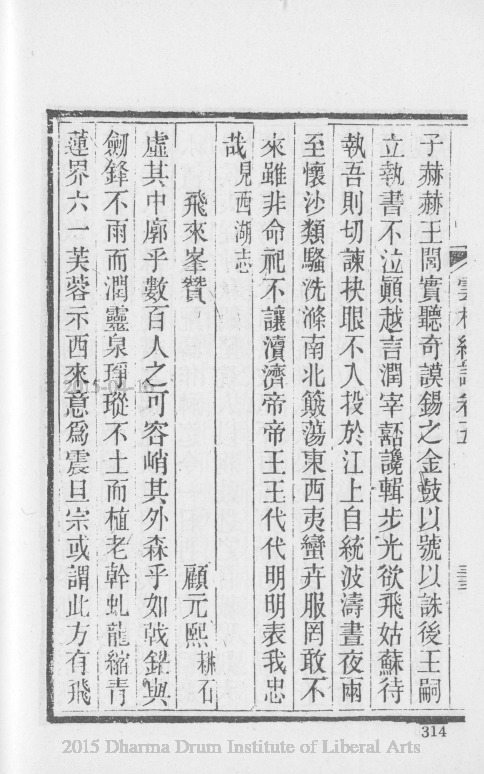 子赫赫王閭實聽奇謨錫之金鼓以號以誅後王嗣
立執書不泣顚越言潤宰嚭讒輯步光欲飛姑蘇待
執吾則切諫抉眼不入投於江上自統波濤晝夜兩
至懷沙類騷洗滌南北簸蕩東西夷蠻卉服罔敢不
來雖非命祀不讓瀆濟帝帝王王代代明明表我忠
哉見西湖志
飛來峯贊 顧元熙 耕石
虛其中廓乎數百人之可容峭其外森乎如戟鋩與
劒鋒不雨而潤靈泉琤瑽不土而植老幹虬龍縮青
蓮界六一芙蓉示西來意爲震旦宗或謂此方有飛
314
2015 Dharma Drum Institute of Liberal Arts